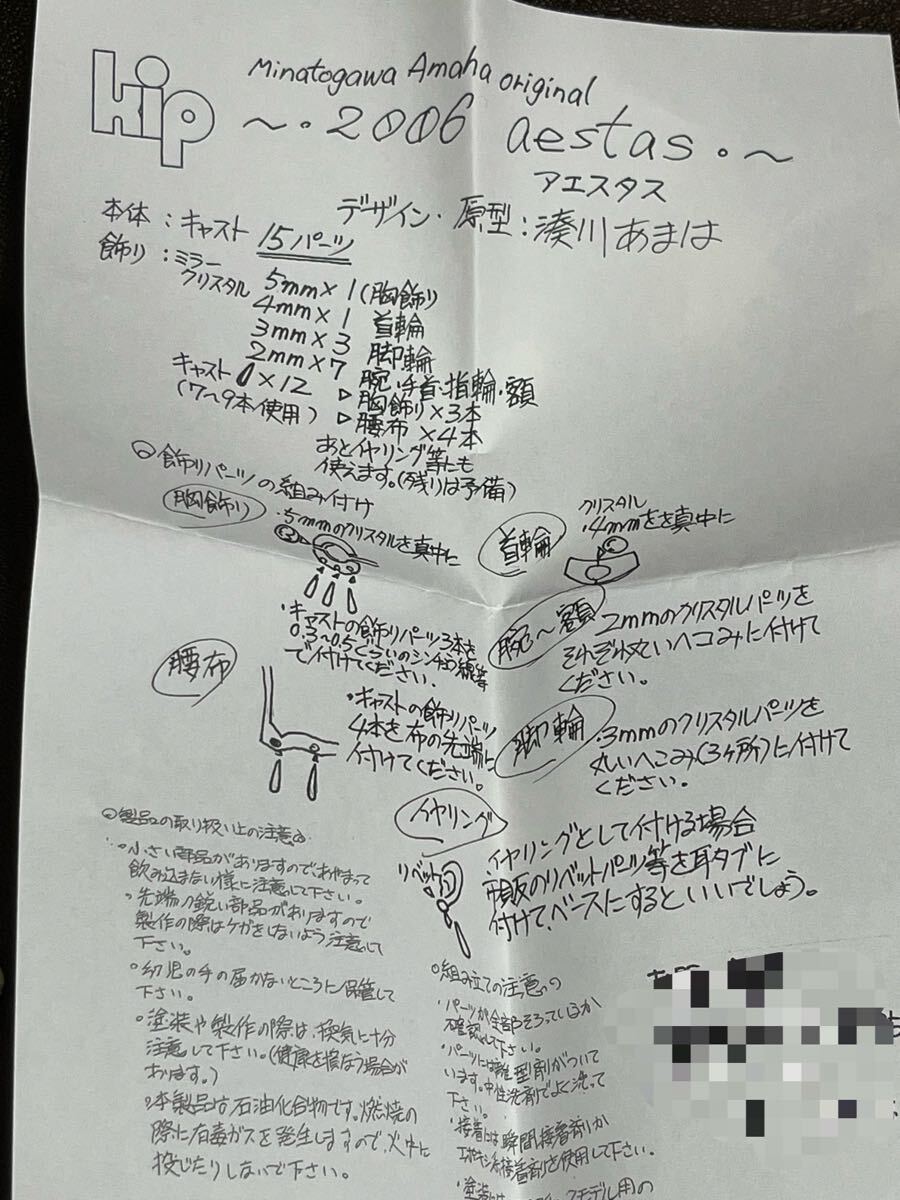 kip
Minatogawa Amaha original
～・2006 aestas・～
アエスタス
デザイン・原型：湊川あまは
本体：キャスト 15パーツ
飾り：ミラー
クリスタル 5mm×1(胸飾り
4mm×1 首輪
3mm×3 脚輪
2mm×7 腕・手首・指輪・額
キャスト ×12 ▷胸飾り×3本
(7〜9本使用) ▷腰布×4本
あとイヤリング等にも
使えます。(残りは予備)
○飾りパーツの組み付け
胸飾り
・5mmのクリスタルを真中に
・キャストの飾りパーツ3本を
0.3〜0.5くらいのシンチュウ線等
で付けてください。
首輪
クリスタル
・4mmをを真中に
腕〜額
2mmのクリスタルパーツを
それぞれ丸いヘコみに付けて
ください。
腰布
・キャストの飾りパーツ
4本を布の先端に
付けてください。
脚輪
・3mmのクリスタルパーツを
丸いへこみ(3ヶ所)に付けて
ください。
イヤリング
リベット
イヤリングとして付ける場合
市販のリベットパーツ等を耳タブに
付けて、ベースにするといいでしょう。
○製品の取り扱い上の注意
・小さい部品がありますので、あやまって
飲み込まない様に注意して下さい。
・先端の鋭い部品がありますので
製作の際はケガをしないよう注意して
下さい。
・幼児の手の届かないところに保管して
下さい。
・塗装や製作の際は、換気に十分
注意して下さい。(健康を損なう場合が
あります。)
・本製品は石油化合物です。燃焼の
際に有毒ガスを発生しますので、火中に
投じたりしないで下さい。
○組み立ての注意
・パーツが全部そろっているか
確認して下さい。
・パーツには離型剤がついて
います。中性洗剤でよく洗って
下さい。
・接着には瞬間接着剤か
エポキシ系接着剤を使用して下さい。
・塗装は モデル用の